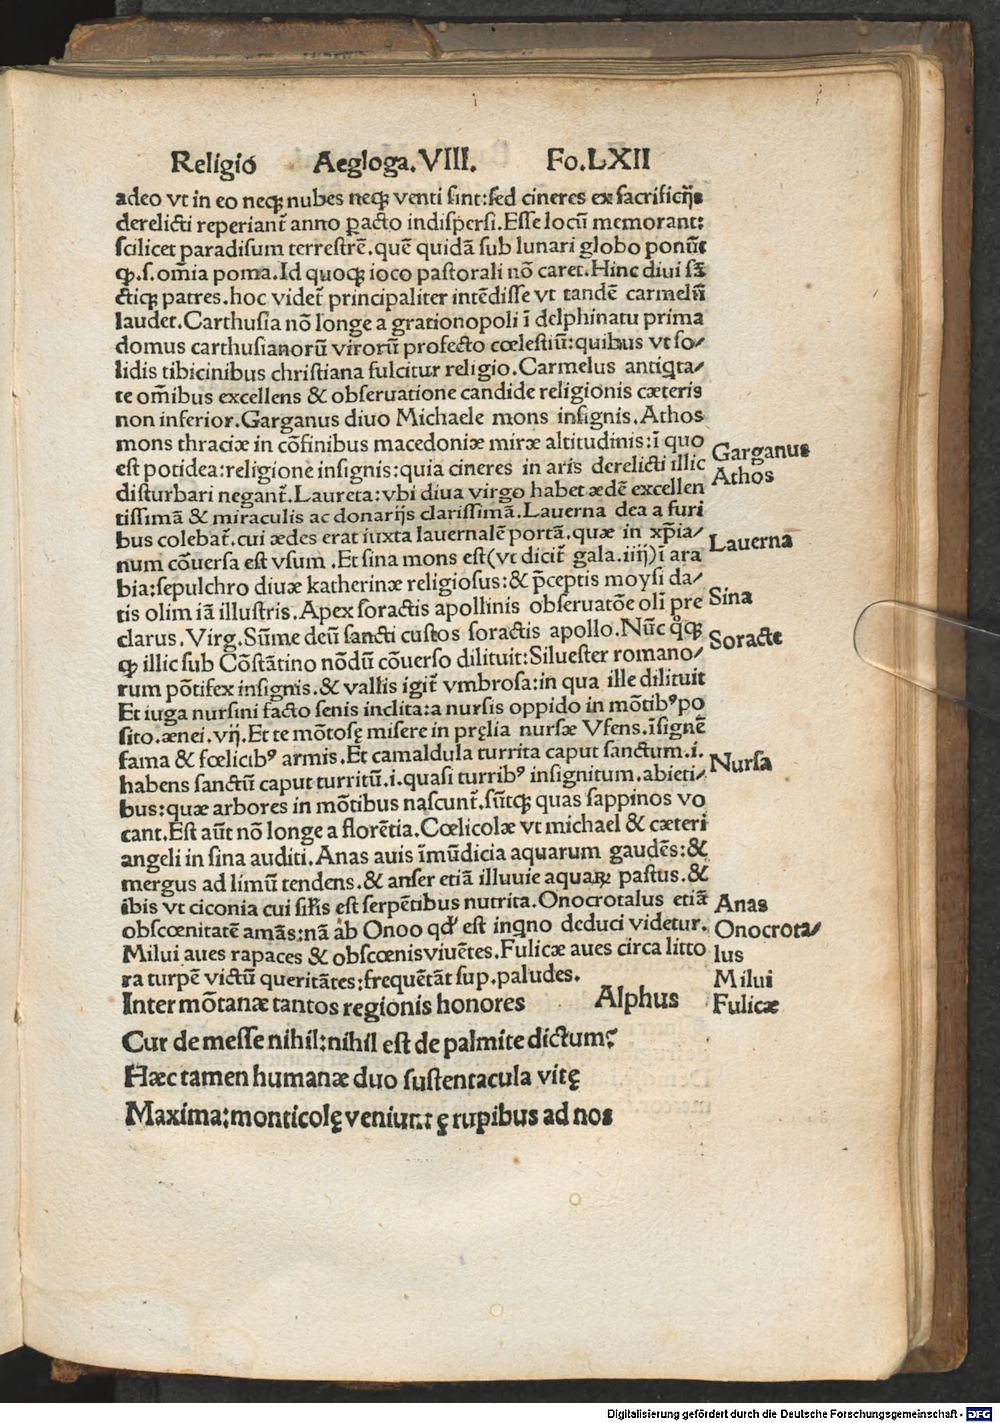 Religiō Aegloga.VIII. Fo.LXII
adeo vt in eo neqꝫ nubes neqꝫ venti sint:sed cineres ex sacrificijs
derelicti reperiant᷑ anno ꝑacto indispersi.Esse locū memorant:
scilicet paradisum terrestrē.quē quidā sub lunari globo ponūt
ꝙ.s.om̄ia poma.Id quoqꝫ ioco pastorali nō caret.Hinc diui sā
ctiqꝫ patres.hoc videt᷑ principaliter intēdisse vt tandē carmelū
laudet.Carthusia nō longe a grationopoli ī delphinatu prima
domus carthusianorū virorū profecto cœlestiū:quibus vt so/
lidis tibicinibus christiana fulcitur religio.Carmelus antiqta/
te om̄ibus excellens & obseruatione candide religionis cæteris
non inferior.Garganus diuo Michaele mons insignis.Athos
mons thraciæ in cōfinibus macedoniæ miræ altitudinis:ī quo
est potidea:religione insignis:quia cineres in aris derelicti illic
disturbari negant᷑.Laureta:vbi diua virgo habet ædē excellen
tissimā & miraculis ac donarijs clarissimā.Lauerna dea a furi
bus colebat᷑.cui ædes erat iuxta lauernalē portā.quæ in xp̄ia/
num cōuersa est vsum.Et sina mons est(vt dicit᷑ gala.iiij)ī ara
bia:sepulchro diuæ katherinæ religiosus:& p̄ceptis moysi da/
tis olim iā illustris.Apex soractis apollinis obseruatōe oli᷑ pre
clarus.Virg.Sūme deū sancti custos soractis apollo.Nūc qͦqꝫ
ꝙ illic sub Cōstātino nōdū cōuerso dilituit:Siluester romano/
rum pōtifex insignis.& vallis igit᷑ vmbrosa:in qua ille dilituit
Et iuga nursini facto senis inclita:a nursis oppido in mōtibꝰ po
sito.ænei.vij.Et te mōtosę misere in pręlia nursæ Vfens.īsignē
fama & fœlicibꝰ armis.Et camaldula turrita caput sanctum.i.
habens sanctū caput turritū.i.quasi turribꝰ insignitum.abieti/
bus:quæ arbores in mōtibus nascunt᷑.sūtqꝫ quas sappinos vo
cant.Est aūt nō longe a florētia.Cœlicolæ vt michael & cæteri
angeli in sina auditi.Anas auis īmūdicia aquarum gaudēs:&
mergus ad limū tendens.& anser etiā illuuie aquaꝝ pastus.&
ibis vt ciconia cui sil̄is est serpētibus nutrita.Onocrotalus etiā
obscœnitatē amās:nā ab Onoo qd' est inqno deduci videtur.
Milui aues rapaces & obscœnis viuētes.Fulicæ aues circa litto
ra turpē victū queritātes:frequētāt sup.paludes.
Garganus
Athos
Lauerna
Sina
Soracte
Nursa
Anas
Onocrota/
lus
Milui
Fulicæ
Inter mōtanæ tantos regionis honores Alphus
Cur de messe nihil:nihil est de palmite dictum?
Hæc tamen humanæ duo sustentacula vitę
Maxima:monticolę veniunt ę rupibus ad nos
Digitalisierung gefördert durch die Deutsche Forschungsgemeinschaft - DFG